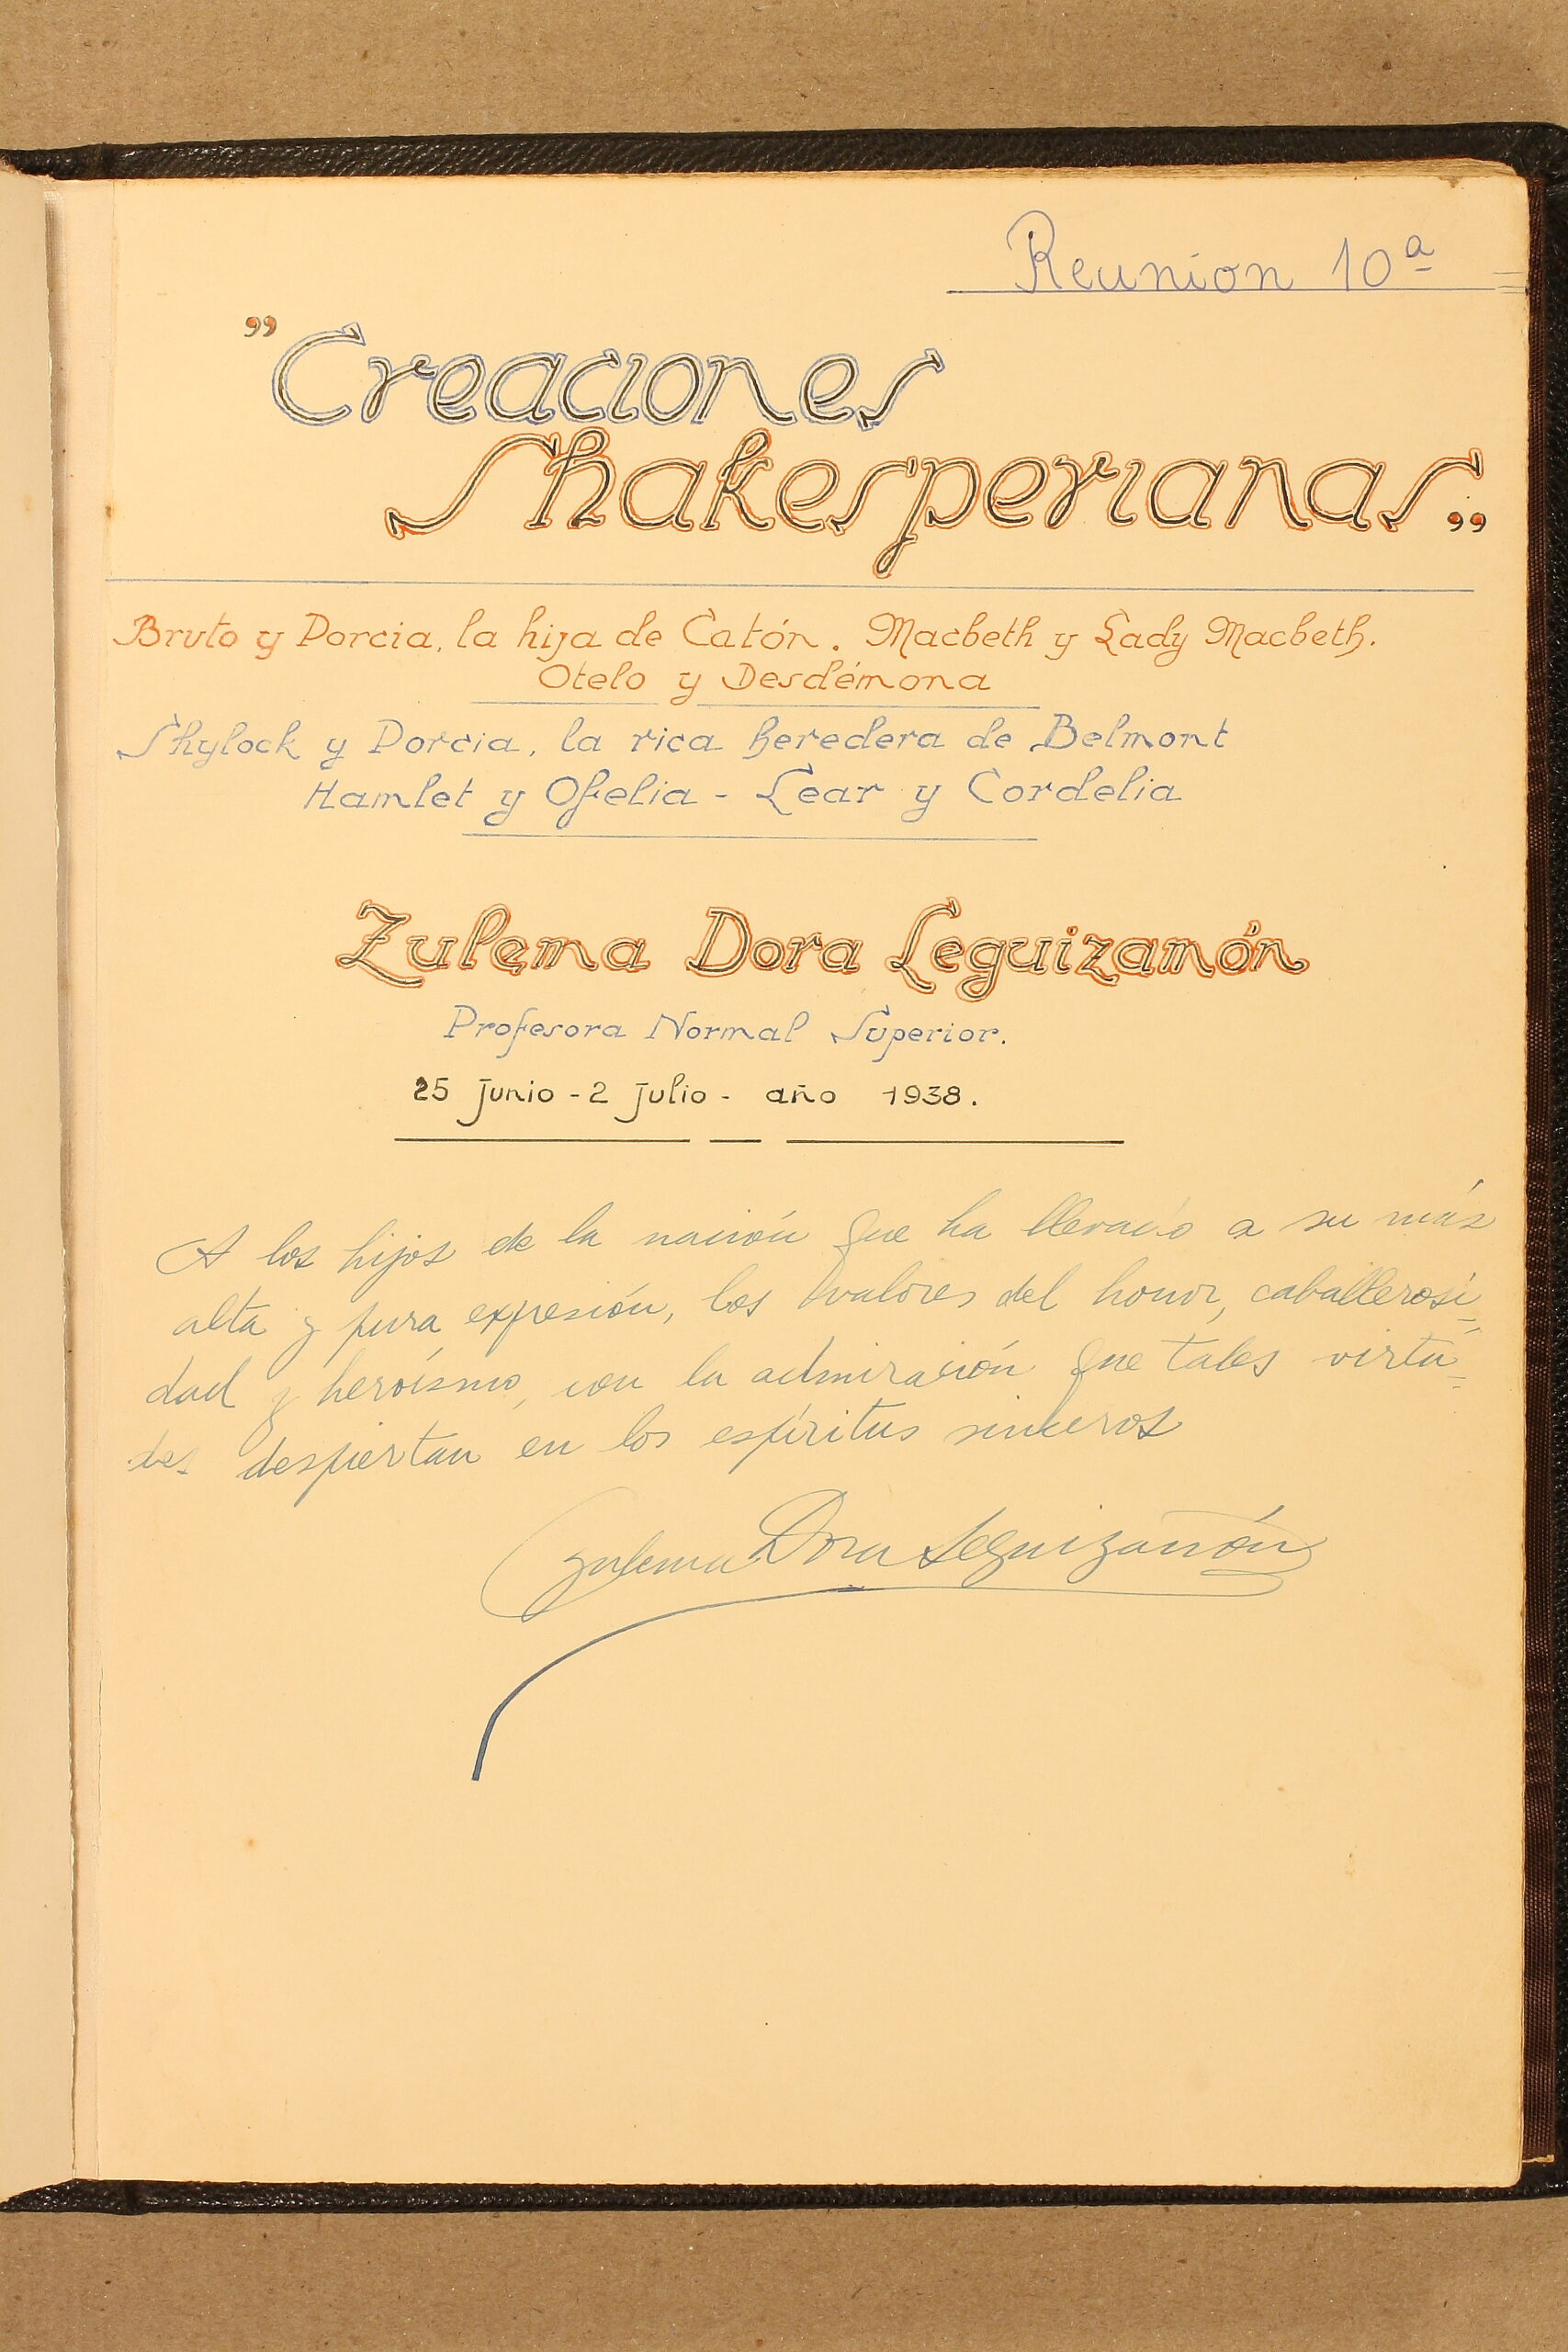 Reunión 10ª
"Creaciones
Shakesperianas"
Bruto y Porcia, la hija de Catón. Macbeth y Lady Macbeth.
Otelo y Desdémona
Shylock y Porcia, la rica heredera de Belmont
Hamlet y Ofelia - Lear y Cordelia
Zulema Dora Leguizamón
Profesora Normal Superior.
25 Junio - 2 Julio - año 1938.
A los hijos de la nación que ha llevado a su más
alta y pura expresión, los valores del honor, caballerosi=
dad y heroísmo, con la admiración que tales virtu=
des despiertan en los espíritus sinceros
Zulema Dora Leguizamón